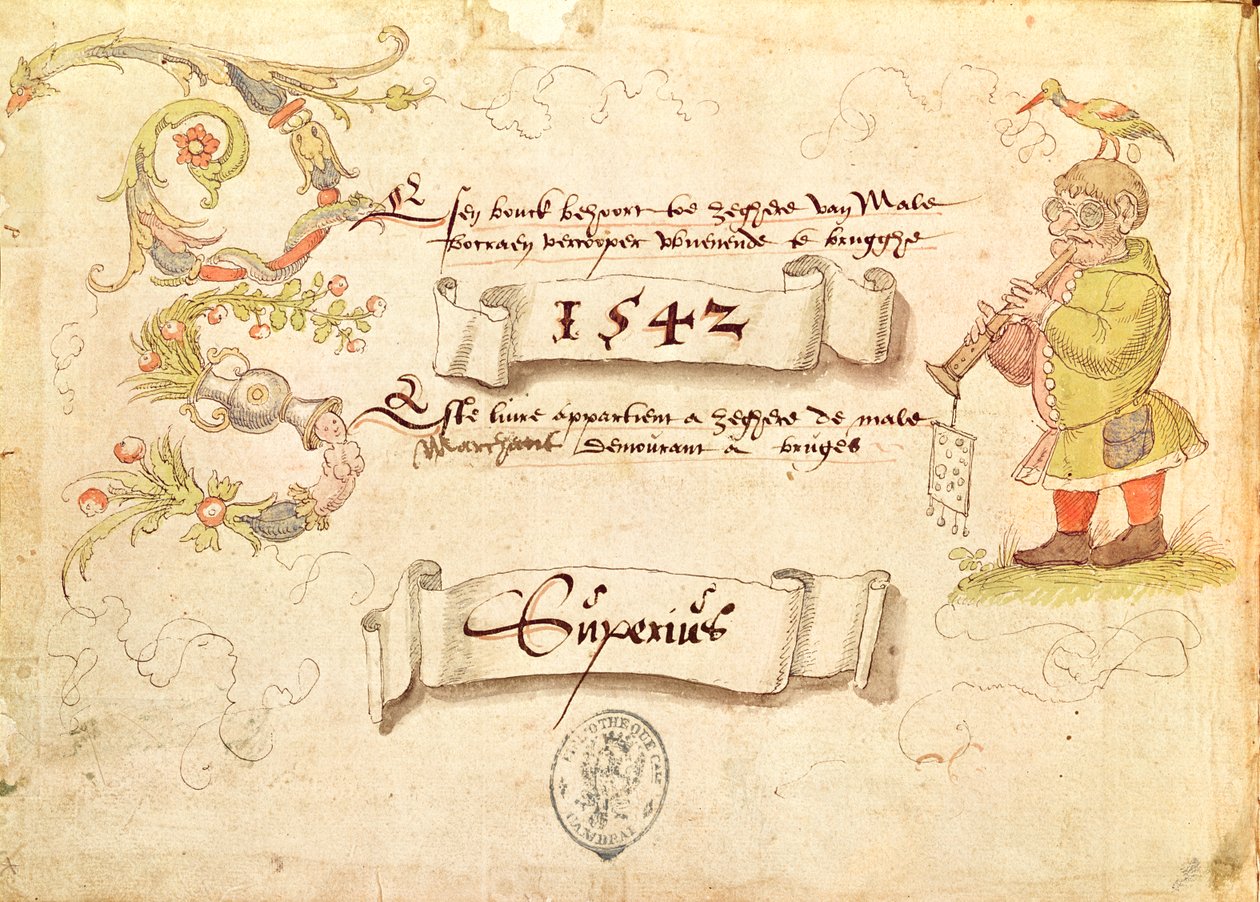 DEsen bouck behoort toe zeghere van Male
botraen vercooper wuenende te brugghe
1542
CEste liure appartient a zeghere de male
Marchant demourant a bruges
Superius
BIBLIOTHEQUE
CAMBRAI